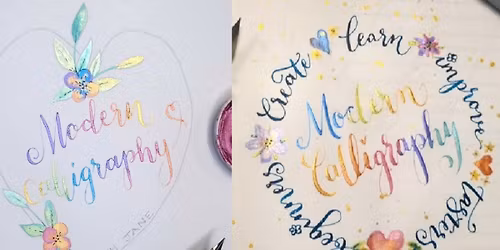 Modern
Calligraphy
JANE
create
learn
improve
tasters
beginners
Modern
Calligraphy